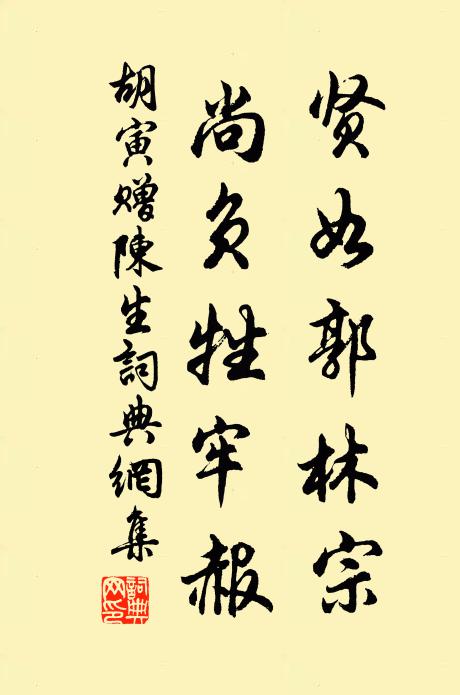 贤如郭林宗
尚负牲牢赧
胡寅赠陳生詞典網集
詞典网印